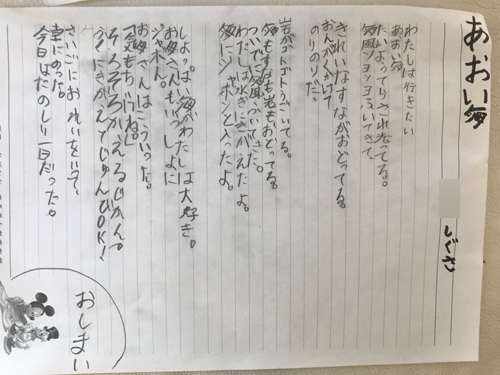 あおい海
しぐさ
わたしは行きたい
あおい海
たいようてらされ光ってる。
海風ショワショワふいてきて
きれいなすながおどってる。
おんぷくかけて
のりのりだ。
岩がゴトゴトうごいてる。
海もすなも岩もおどってる。
ついでに海風ふいてきた。
わたしは水ぎにきがえたよ。
海にジャボンと入ったよ。
しょっぱい海がわたしは大好き。
お母さんもいっしょに
ジャボん。
お母さんはこういった。
「気もちいいね。」
そろそろかえるじかんで
ふくにきがえてじゅんびOK!
さいごにおれいをいって、
車にのった。
今日はたのしい一日だった。
おしまい